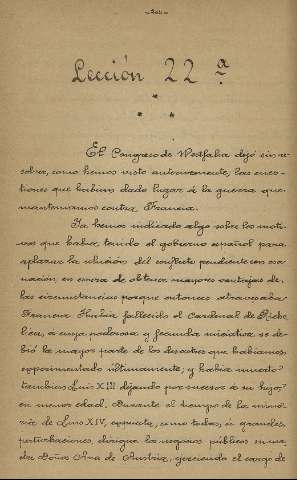 Lección 22ª
El Congreso de Westfalia dejó sin re-
solver, como hemos visto anteriormente, las cues-
tiones que habian dado lugar á la guerra que
manteniamos contra Francia.
Ya hemos indicado algo sobre los moti-
vos que habia tenido el gobierno español para
aplazar la solución del conflicto pendiente con esa
nación en espera de obtener mayores ventajas de
las circunstancias porque entonces atravesaba
Francia. Habia fallecido el Cardenal de Riche-
lieu, a cuya poderosa y fecunda iniciativa se de-
bió la mayor parte de los desastres que habiamos
experimentado últimamente, y habia muerto
tambien Luis XIII dejando por sucesor á su hijo,
en menor edad. Durante el tiempo de la mino-
ria de Luis XIV, expuesta, como todas, á grandes
perturbaciones, dirigia los negocios públicos su ma-
dre Doña Ana de Austria, ejerciendo el cargo de